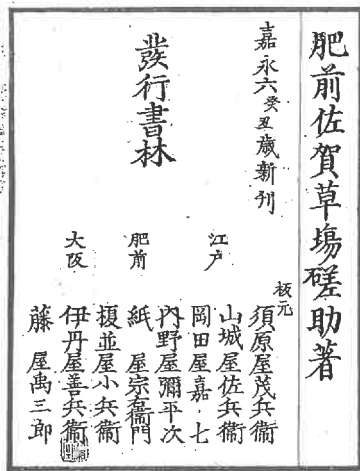 肥前佐賀草場磋助著
嘉永六癸丑歳新刊
發行書林
江戸
板元
須原屋茂兵衞
山城屋佐兵衞
岡田屋嘉七
肥前
内野屋彌平次
紙屋宗右衞門
大阪
榎並屋小兵衞
伊丹屋善兵衞
藤屋禹三郎